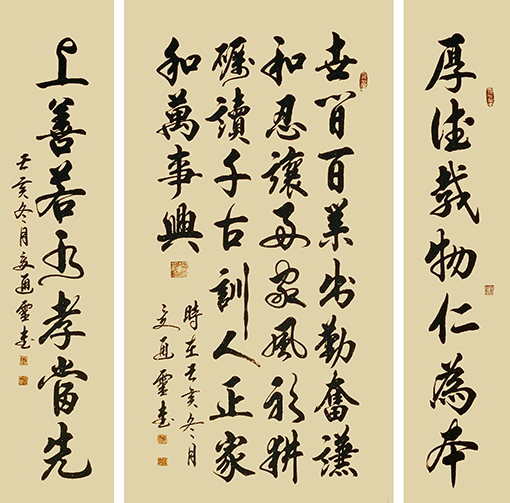 厚德載物仁為本
世間百業出勤奮謙
和忍讓家風耕
礪讀千古訓人正家
和萬事興
時在亥冬月
通靈書
上善若水孝當先
亥冬月通靈書